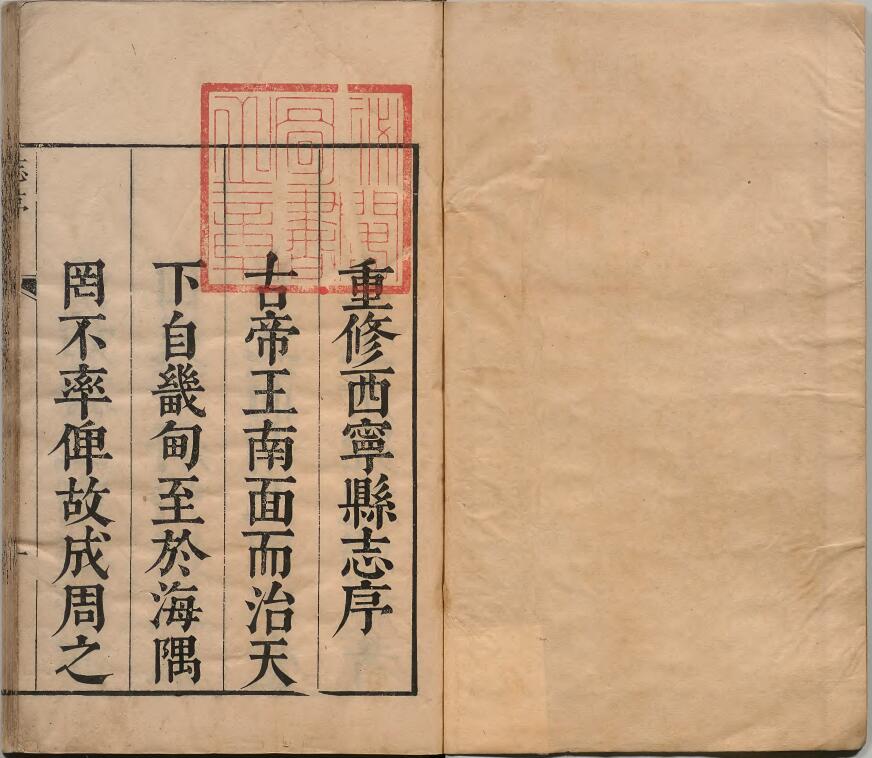 重修西寧縣志序
古帝王南面而治天
下自畿甸至於海隅
罔不率俾故成周之
志序
一